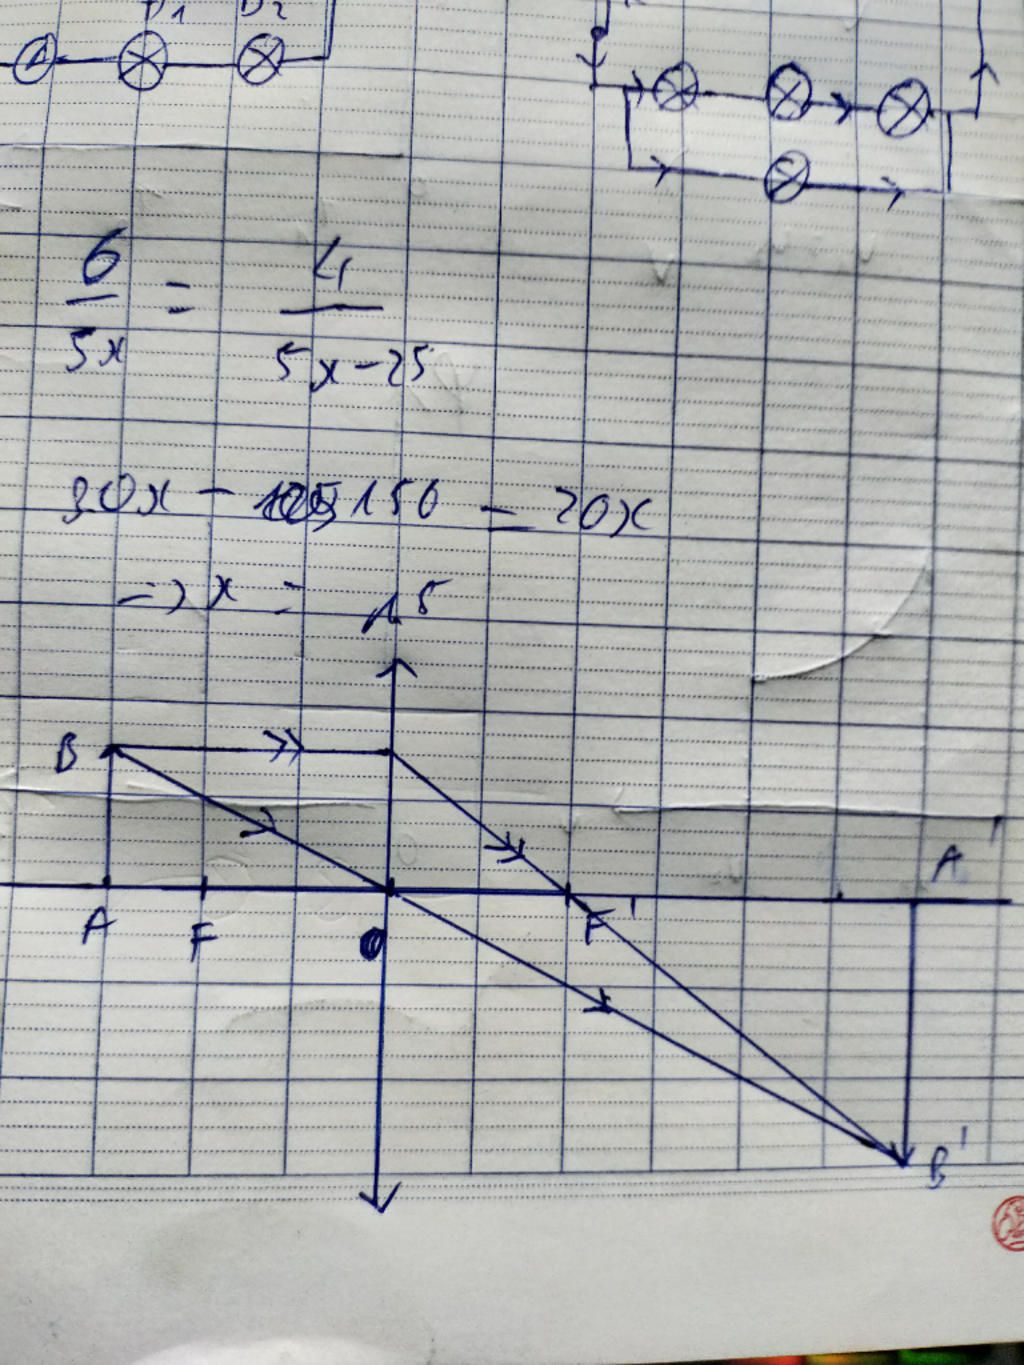 D1 D2
A
6/5x = 4/(5x-25)
30x - 150 = 20x
=> x = 15
B
A'
A F O F'
B'